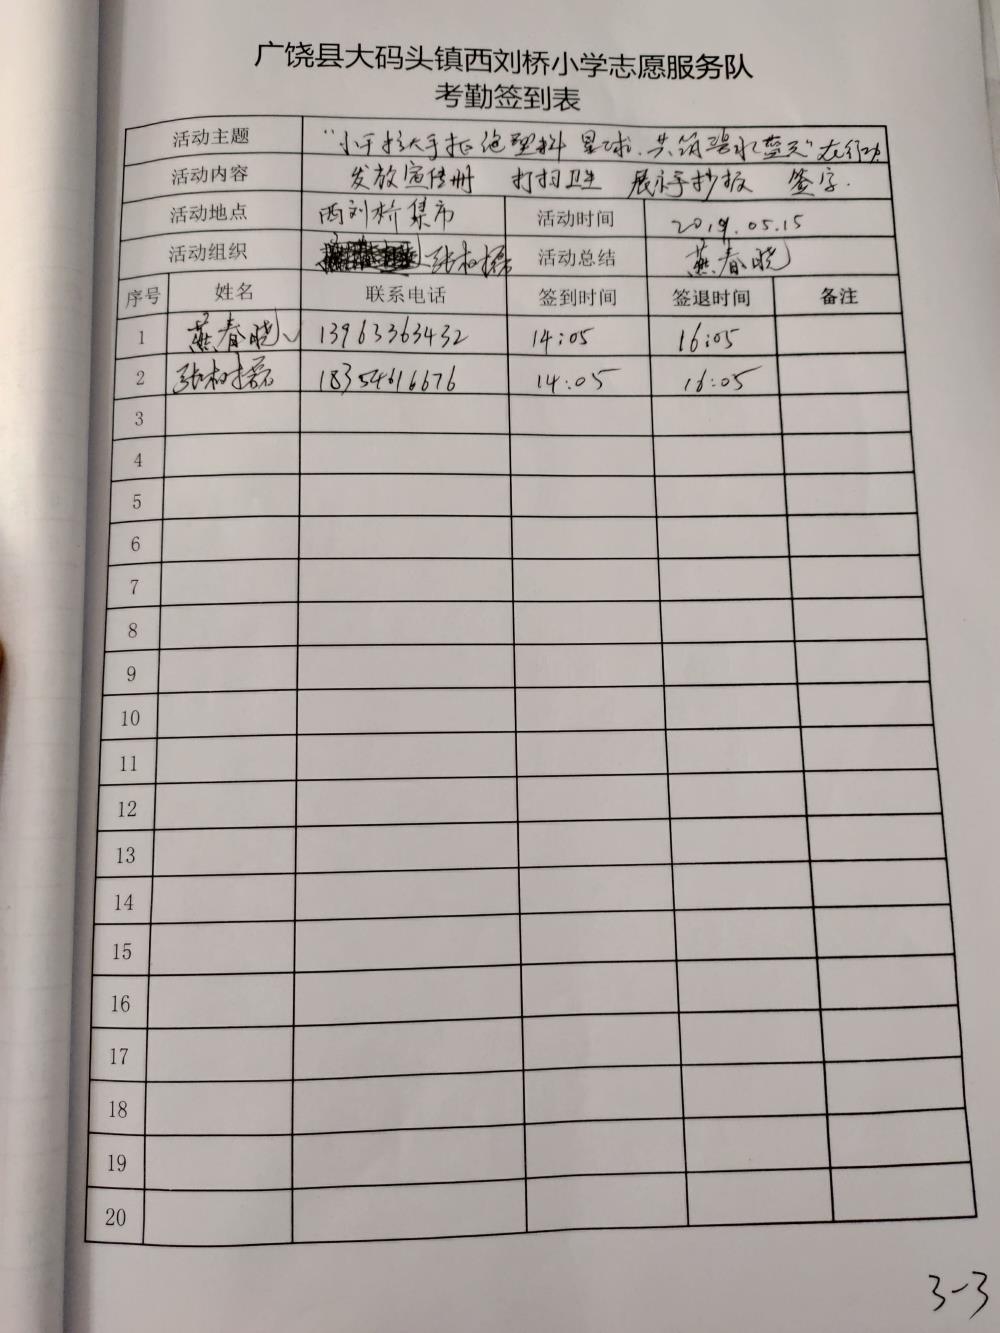 广饶县大码头镇西刘桥小学志愿服务队
考勤签到表
活动主题 "小手拉大手拒绝塑料星球、共筑碧水蓝天"在行动
活动内容 发放宣传册 打扫卫生 展示手抄报 签字.
活动地点 西刘桥集市 活动时间 2019.05.15
活动组织 张 活动总结 燕春晓
序号 姓名 联系电话 签到时间 签退时间 备注
1 燕春晓 13963363432 14:05 16:05
2 张 18354616676 14:05 16:05
3
4
5
6
7
8
9
10
11
12
13
14
15
16
17
18
19
20
3-3